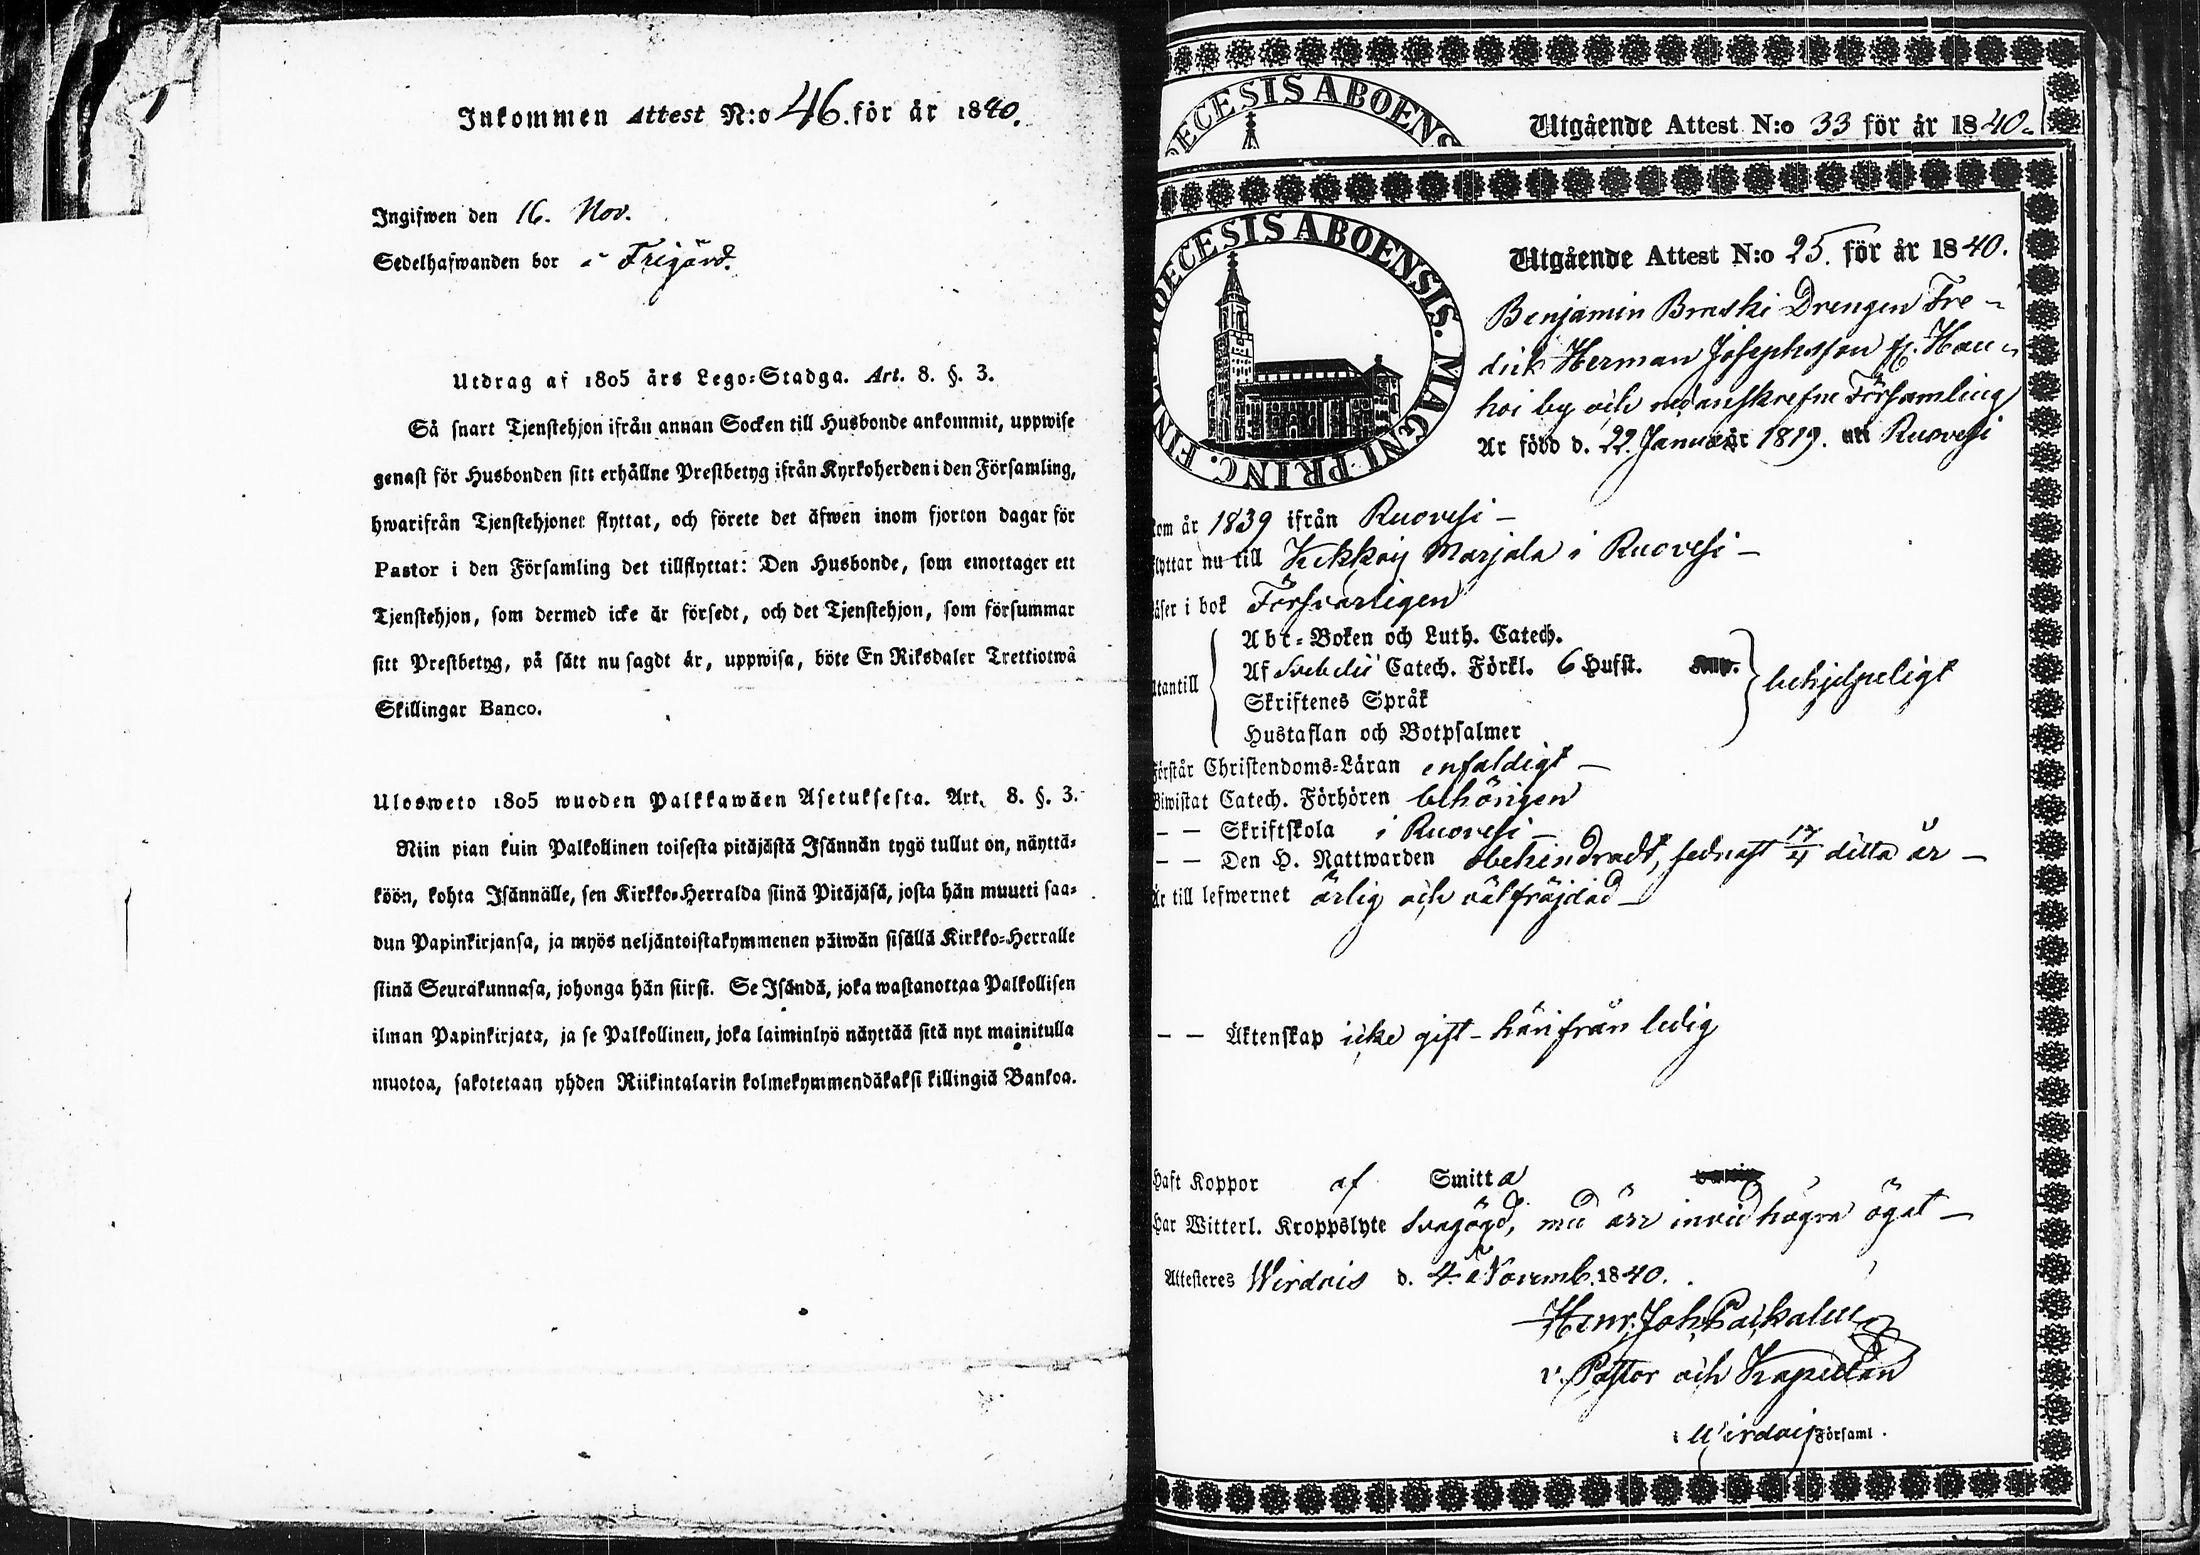 Inkommen Attest N:o 46. för år 1840.
Ingifwen den 16. Nov.
Sedelhafwanden bor i Frigård.
Utdrag af 1805 års Lego-Stadga. Art. 8. §. 3.
Så snart Tjenstehjon ifrån annan Socken till Husbonde ankommit, uppwise
genast för Husbonden sitt erhållne Prestbetyg ifrån Kyrkoherden i den Församling,
hwarifrån Tjenstehjonet flyttat, och förete det äfwen inom fjorton dagar för
Pastor i den Församling det tillflyttat: Den Husbonde, som emottager ett
Tjenstehjon, som dermed icke är försedt, och det Tjenstehjon, som försummar
sitt Prestbetyg, på sätt nu sagdt är, uppwisa, böte En Riksdaler Trettiotwå
Skillingar Banco.
Ulosweto 1805 wuoden Palkkawäen Asetuksesta. Art. 8. §. 3.
Niin pian kuin Palkollinen toisesta pitäjästä Isännän tygö tullut on, näyttä-
köön, kohta Isännälle, sen Kirkko-Herralda siinä Pitäjäsä, josta hän muutti saa-
dun Papinkirjansa, ja myös neljäntoistakymmenen päiwän sisällä Kirkko-Herralle
siinä Seurakunnasa, johonga hän siirsi. Se Isändä, joka wastanottaa Palkollisen
ilman Papinkirjata, ja se Palkollinen, joka laiminlyö näyttää sitä nyt mainitulla
muotoa, sakotetaan yhden Riikintalarin kolmekymmendäkaksi killingiä Bankoa.
DECESIS ABOENS
Utgående Attest N:o 33 för år 1840.
DIOECESIS ABOENSIS. MAGNI PRINC. FINL
Utgående Attest N:o 25. för år 1840.
Benjamin Braski Drengen Fre-
drik Herman Josephsson fr. Hau-
hoi by och nedanskrefne Församling
Är född d. 22. Januar 1819. uti Ruovesi
Kom år 1839 ifrån Ruovesi -
flyttar nu till Kekkoij Marjala i Ruovesi -
Läser i bok Försvarligen
Utantill
Abc-Boken och Luth. Catech.
Af Svebelii Catech. Förkl. 6 Hufst.
Skriftenes Språk
Hustaflan och Botpsalmer
behjelpeligt
Förstår Christendoms-Läran enfaldigt -
Biwistat Catech. Förhören behörigen
- - Skriftskola i Ruovesi -
- - Den H. Nattwarden obehindradt, sednast 17/4 detta år -
Är till lefwernet ärlig och välfräjdad -
- - Äktenskap icke gift - härifrån ledig
Haft Koppor af Smitta
Har Witterl. Kroppslyte Svagögd, med ärr invid högra ögat -
Attesteres Wirdois d. 4. Novemb. 1840.
Henr. Joh. Paikalén
v. Pastor och Kapellan
i Wirdois Församl.